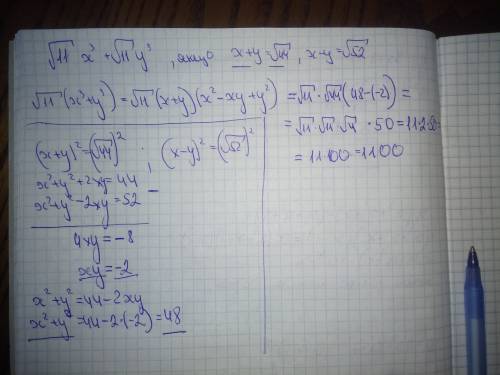 √11 x³ + √11 y³, якщо x+y=√44, x-y=√52
√11 (x³+y³)=√11 (x+y)(x²-xy+y²)=√11·√44(48-(-2))=
=√11·√11·√4·50=11·2·50=
=11·100=1100
(x+y)²=(√44)² ; (x-y)²=(√52)²
x²+y²+2xy=44
x²+y²-2xy=52
4xy=-8
xy=-2
x²+y²=44-2xy
x²+y²=44-2·(-2)=48